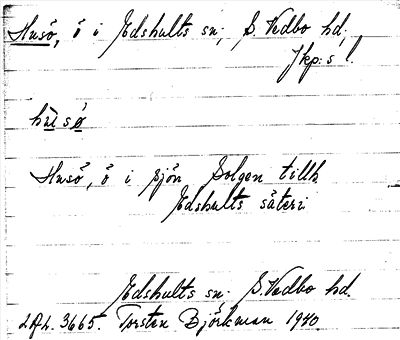 Husö, ö i Edshults sn; S. Vedbo hd;
Jkp:s l.
hùsǿ
Husö, ö i sjön Solgen tillh.
Edshults säteri
Edshults sn; S. Vedbo hd.
Torsten Björkman 1940.